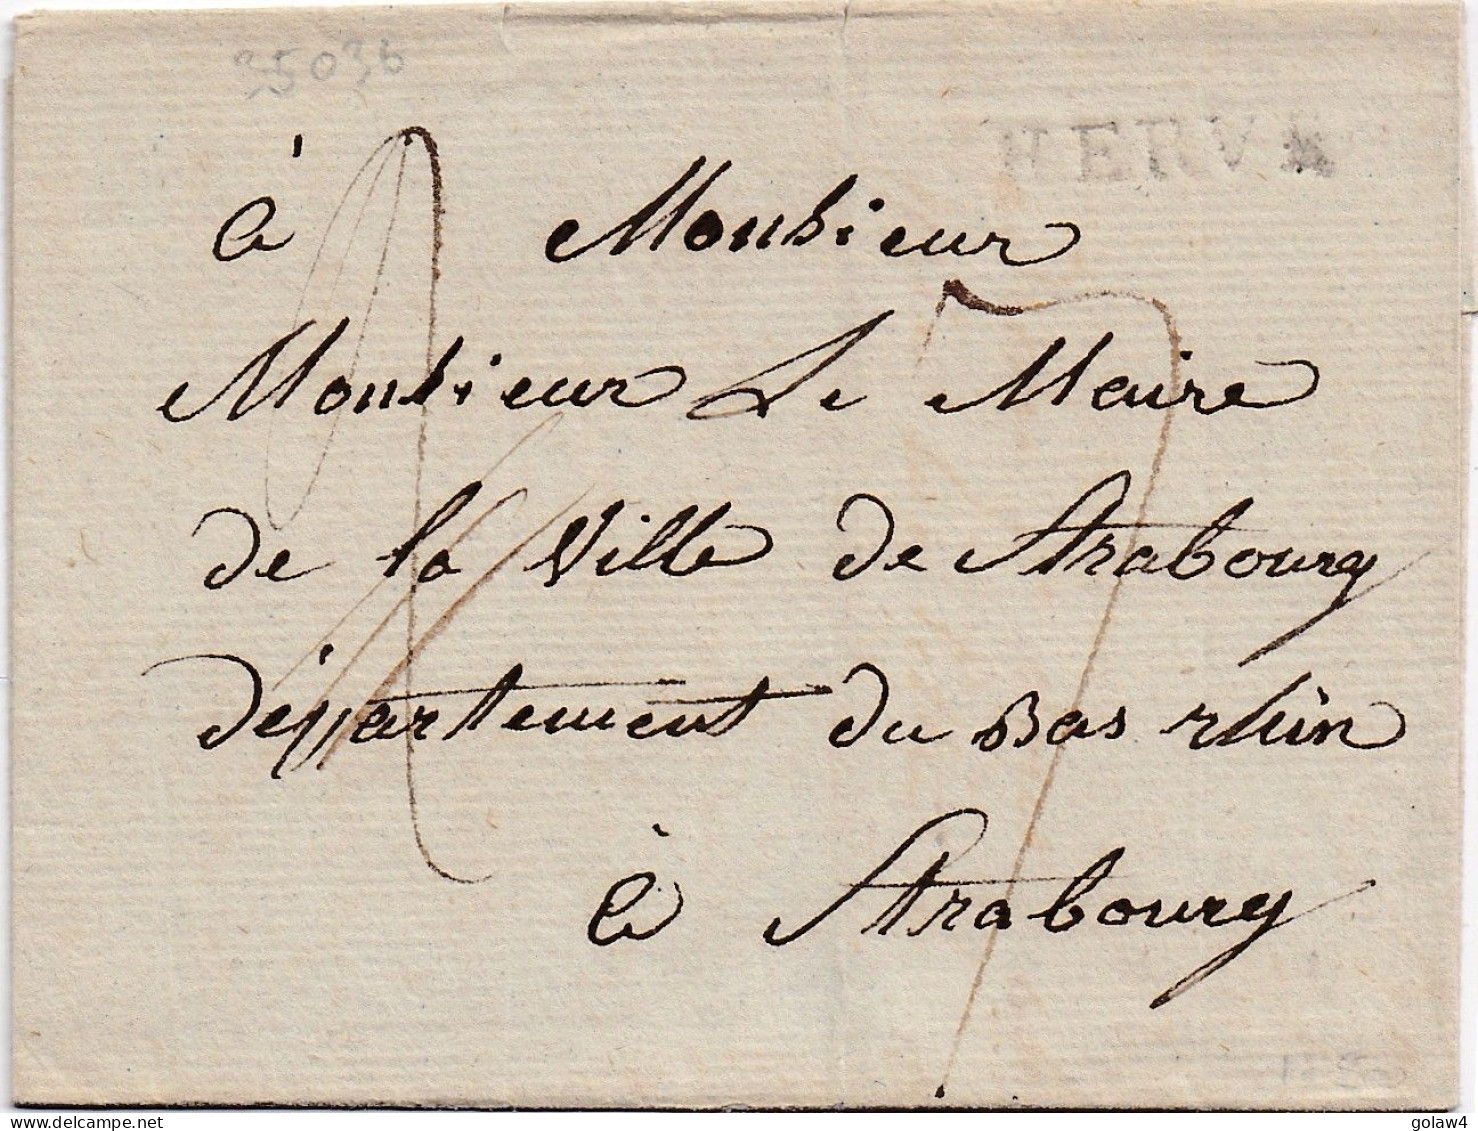 35036
HERVE
à Monsieur
Monsieur Le Maire
de la Ville de Strabourg
département du Bas rhin
à Strabourg
7
delcampe.net
golaw4